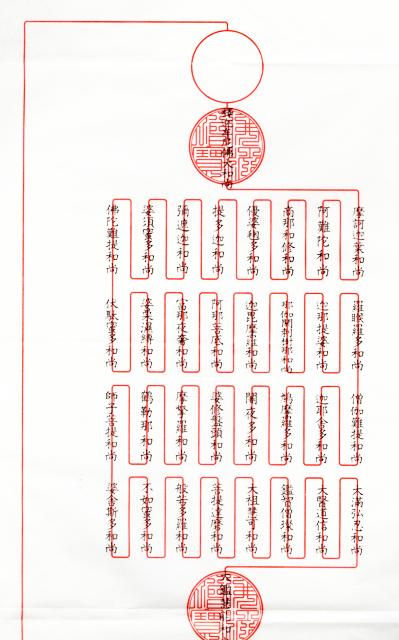 摩訶迦葉和尚
阿難陀和尚
商那和修和尚
優婆毱多和尚
提多迦和尚
彌遮迦和尚
婆須蜜多和尚
佛陀難提和尚
伏馱蜜多和尚
婆栗濕縛和尚
富那夜奢和尚
阿那菩底和尚
迦毘摩羅和尚
那伽閼剌樹那和尚
迦那提婆和尚
羅睺羅多和尚
僧伽難提和尚
迦耶舍多和尚
鳩摩羅多和尚
闍夜多和尚
婆修盤頭和尚
摩拏羅和尚
鶴勒那和尚
師子菩提和尚
婆舍斯多和尚
不如蜜多和尚
般若多羅和尚
菩提達磨和尚
太祖慧可和尚
鑑智僧璨和尚
大醫道信和尚
大滿弘忍和尚
大鑑慧能和